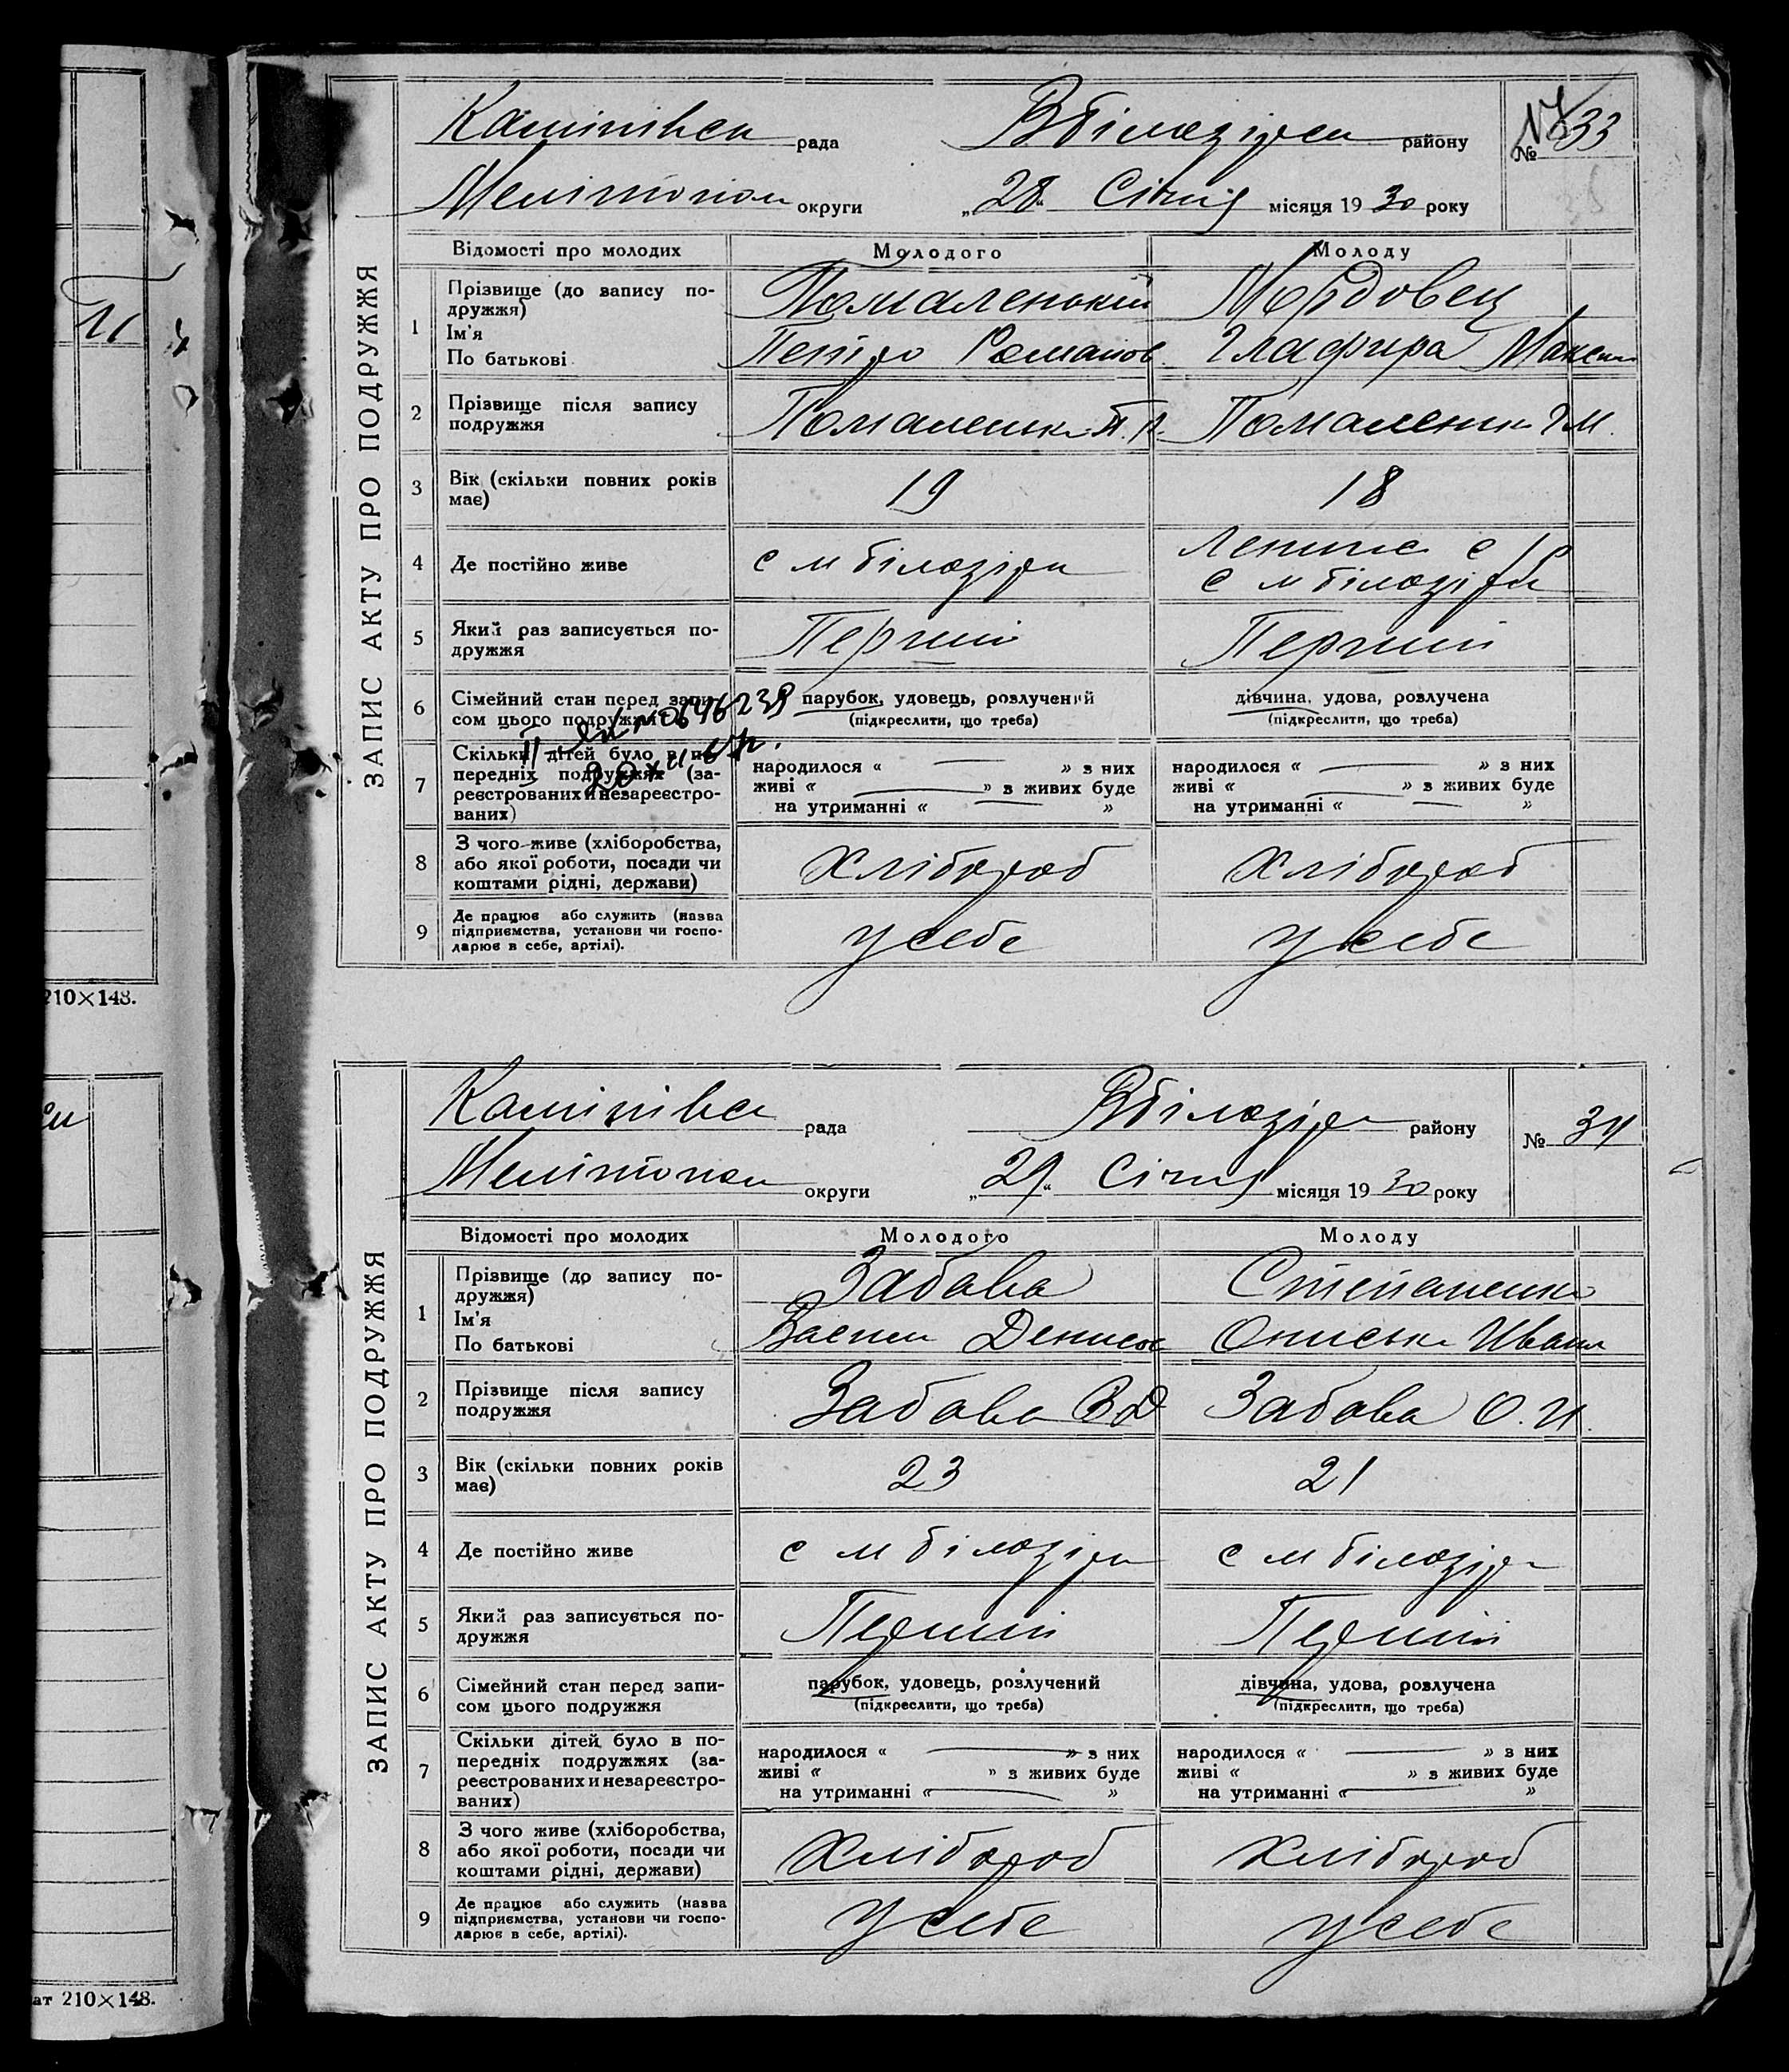 рада
Вбілозірсн району
№ 33
Мелітопол округи
„28“ Січня місяця 1930 року
ЗАПИС АКТУ ПРО ПОДРУЖЖЯ
Відомості про молодих Молодого Молоду
1 Прізвище (до запису по-
дружжя)
Помаленький Мордовец
Ім'я
По батькові
Петро Романов Глафира Максим
2 Прізвище після запису
подружжя
П. Р. Г М.
3 Вік (скільки повних років
має)
19 18
4 Де постійно живе
с м білозірки
с м білозірки
5 Який раз записується по-
дружжя
Перший Перший
6 Сімейний стан перед запи-
сом цього подружжя
парубок, удовець, розлучений дівчина, удова, розлучена
(підкреслити, що треба) (підкреслити, що треба)
7 Скільки дітей було в по-
передніх подружжях (за-
реєстрованих и незареєстро-
ваних)
народилося « — » з них народилося « — » з них
живі « — » з живих буде живі « — » з живих буде
на утриманні « — » на утриманні « — »
8 З чого живе (хліборобства,
або якої роботи, посади чи
коштами рідні, держави)
Хлібороб Хлібороб
9 Де працює або служить (назва
підприємства, установи чи госпо-
дарює в себе, артілі).
у себе у себе
210×148.
рада
Вбілозірсн району
№ 34
Мелітопол округи
„29“ Січня місяця 1930 року
ЗАПИС АКТУ ПРО ПОДРУЖЖЯ
Відомості про молодих Молодого Молоду
1 Прізвище (до запису по-
дружжя)
Забава Степаненко
Ім'я
По батькові
Васили Денисов Ониська Иван
2 Прізвище після запису
подружжя
Забава В Д Забава О. И.
3 Вік (скільки повних років
має)
23 21
4 Де постійно живе
с м білозірки с м білозірки
5 Який раз записується по-
дружжя
Перший Перший
6 Сімейний стан перед запи-
сом цього подружжя
парубок, удовець, розлучений дівчина, удова, розлучена
(підкреслити, що треба) (підкреслити, що треба)
7 Скільки дітей було в по-
передніх подружжях (за-
реєстрованих и незареєстро-
ваних)
народилося « — » з них народилося « — » з них
живі « » з живих буде живі « » з живих буде
на утриманні « — » на утриманні « — »
8 З чого живе (хліборобства,
або якої роботи, посади чи
коштами рідні, держави)
Хлібороб Хлібороб
9 Де працює або служить (назва
підприємства, установи чи госпо-
дарює в себе, артілі).
у себе у себе
ат 210×148.